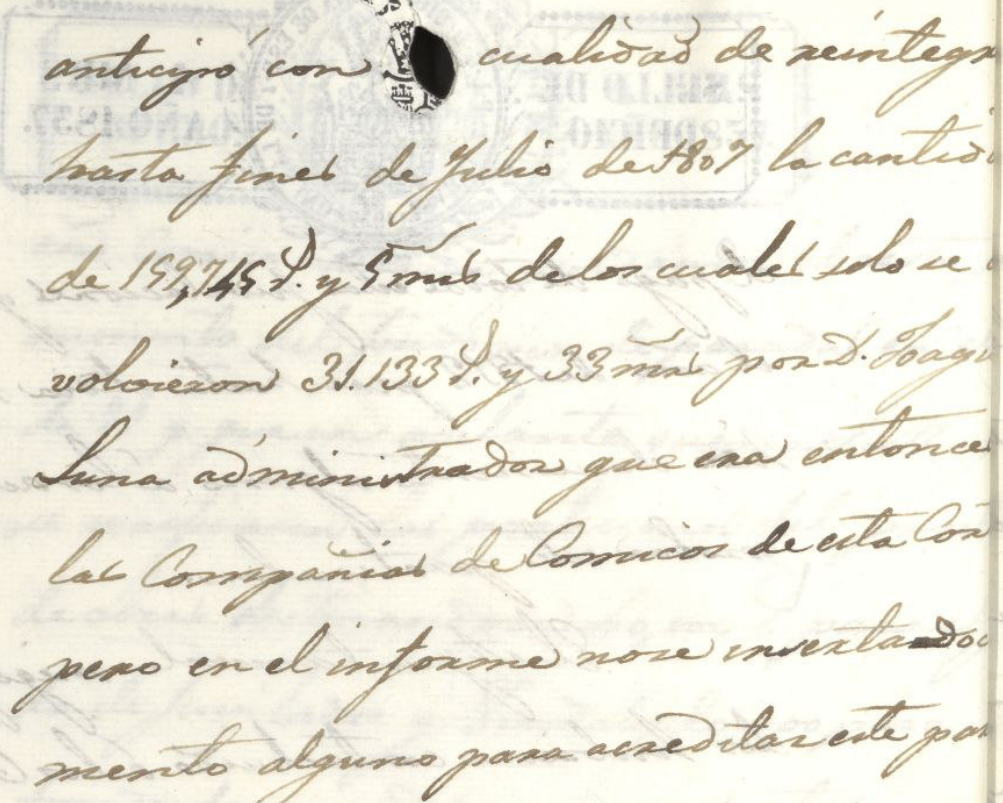 anticipó con cualidad de reintegr
hasta fines de Julio de 1807 la cantid
de 159,745 r. y 5 mrs de los cuales solo se
volvieron 31.133 r. y 33 mrs por D. Joaqu
Luna administrador que era entonce
las Compañias de Comicos de esta Cor
pero en el informe no se inserta do
mento alguno para acreditar este par